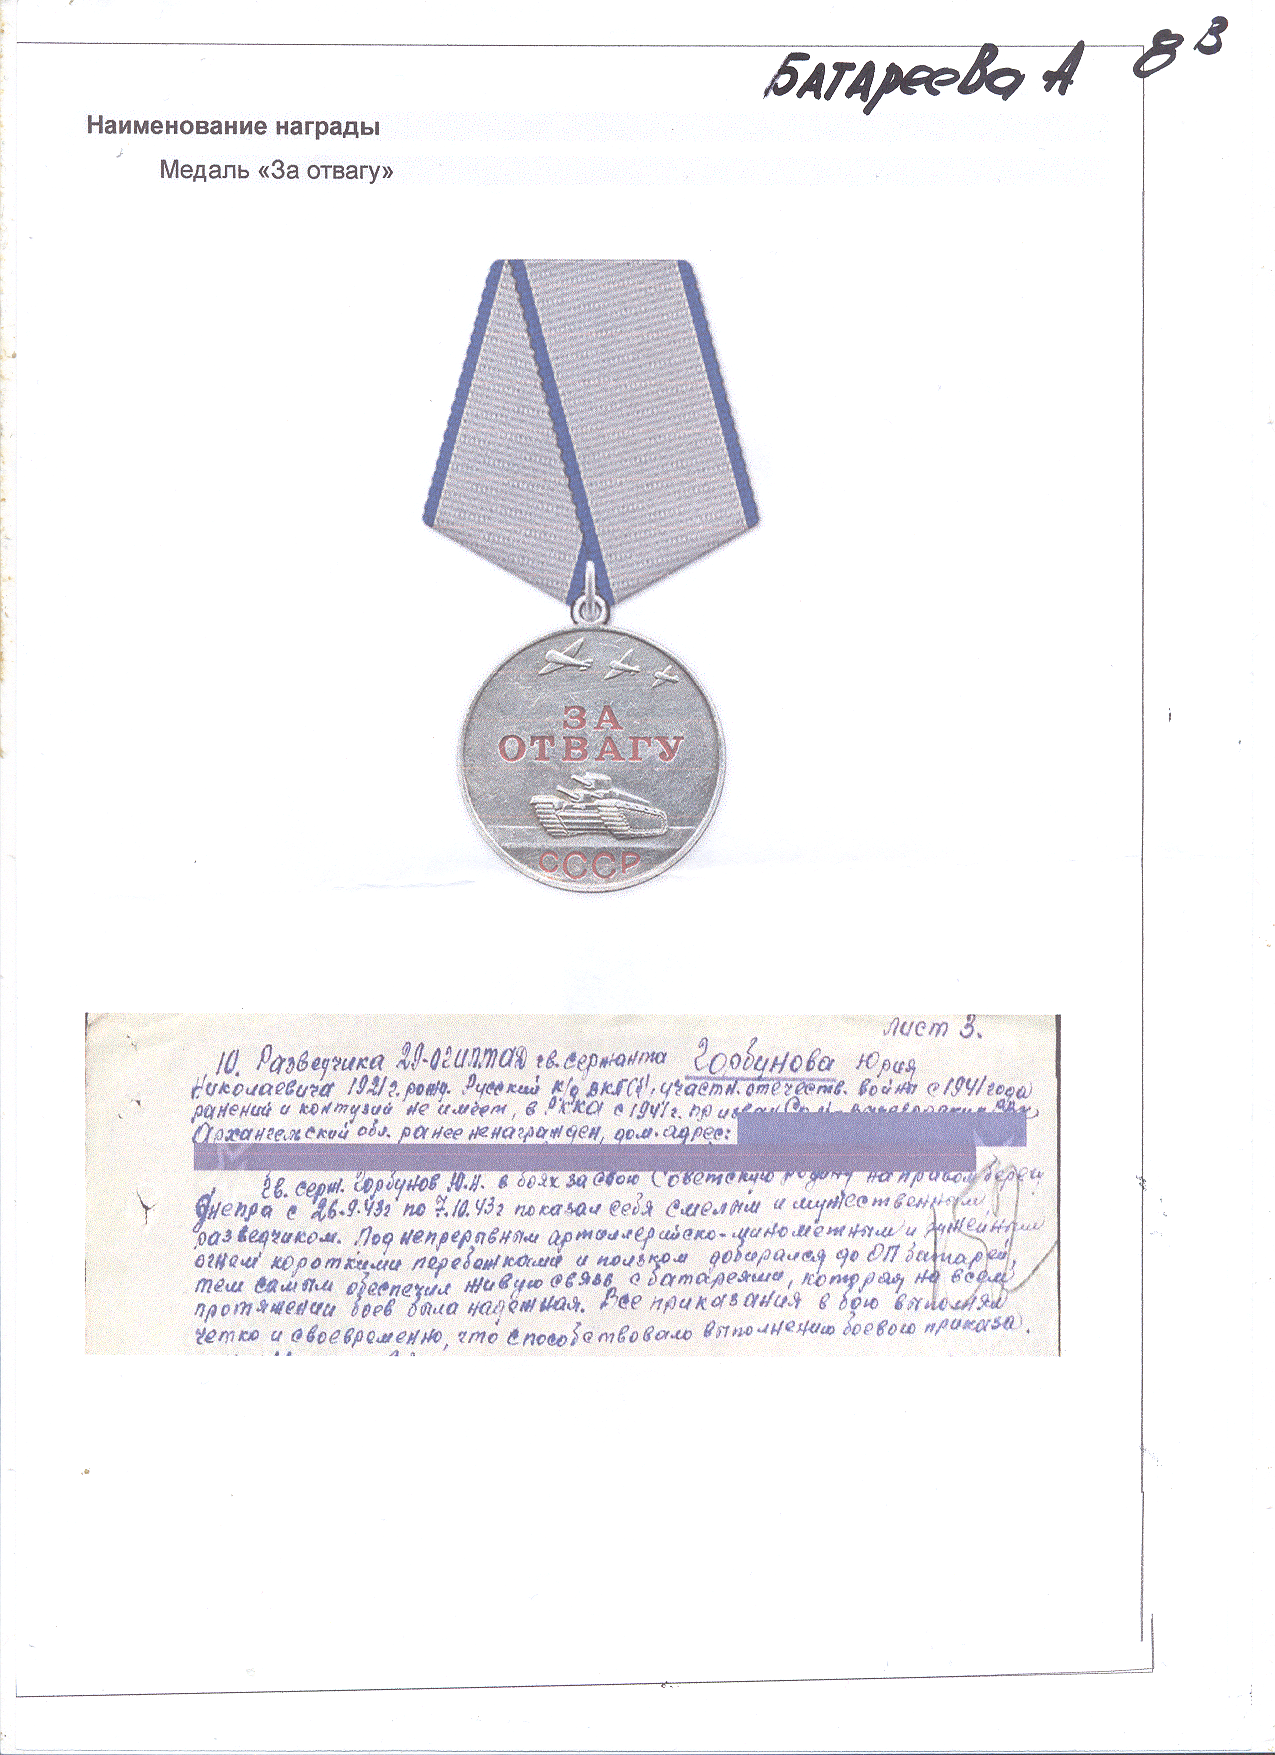 БАТАРЕЕВА А 8 В
Наименование награды
Медаль «За отвагу»
ЗА
ОТВАГУ
СССР
лист 3.
10. Разведчика 29-огиптад гв. сержанта Горбунова Юрия
Николаевича 1921 г. рожд. Русский к/о ВКП(б). участн. отечеств. войны с 1941 года
ранений и контузий не имеет, в РККА с 1941 г. призван
Архангельской обл. ранее ненагражден, дом. адрес:
Гв. серж. Горбунов Ю.Н. в боях за свою Советскую родину на правом берегу
Днепра с 26.9.43г по 7.10.43г показал себя смелым и мужественным
разведчиком. Под непрерывным артиллерийско-минометным и ружейным
огнем короткими перебежками и ползком добирался до ОП батарей,
тем самым обеспечил живую связь с батареями, которая на всем
протяжении боев была надежная. Все приказания в бою выполнял
четко и своевременно, что способствовало выполнению боевого приказа.